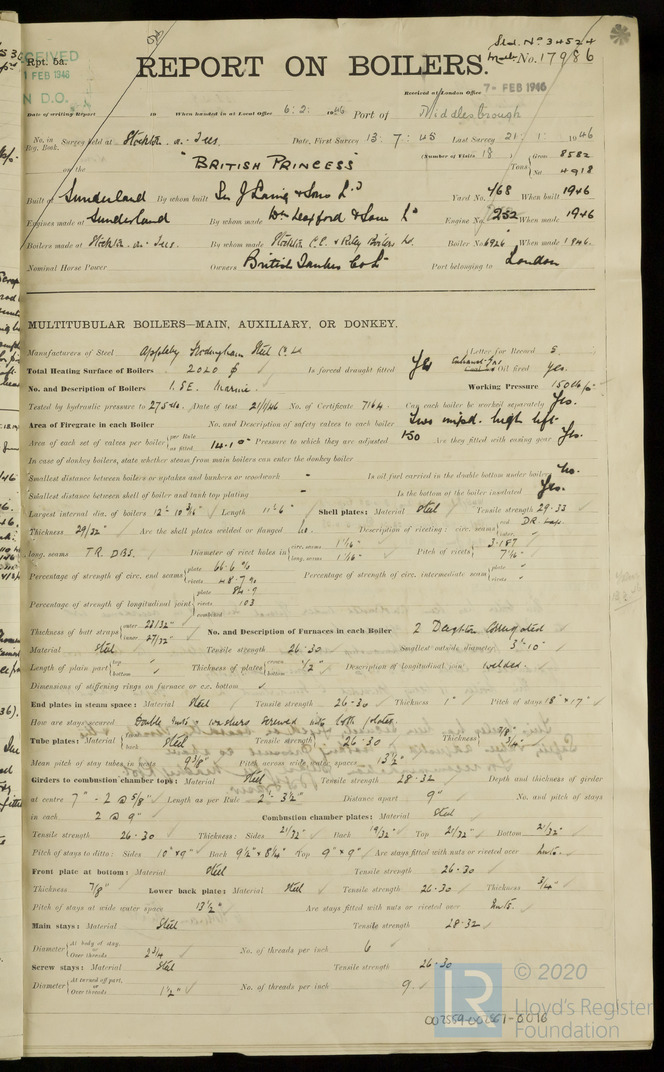 RECEIVED
FEB 1946
N D.O.
Rpt. 5a.
Std. No 34524
Mdb. No. 17986
REPORT ON BOILERS.
Received at London Office 7 - FEB 1946
Date of writing Report 19 When handed in at Local Office 6.2.1946 Port of Middlesbrough
No. in Reg. Book. Survey held at Stockton-on-Tees Date, First Survey 13.7.45 Last Survey 21.1.1946
on the "BRITISH PRINCESS" (Number of Visits 18) Tons { Gross 8582 Net 4918
Built at Sunderland By whom built Sir J Laing & Sons Ld Yard No. 768 When built 1946
Engines made at Sunderland By whom made Wm Doxford & Sons Ld Engine No. 252 When made 1946
Boilers made at Stockton-on-Tees By whom made Stockton C.E. & Riley Boilers Ld. Boiler No. 6926 When made 1946.
Nominal Horse Power Owners British Tanker Co Ld Port belonging to London
MULTITUBULAR BOILERS—MAIN, AUXILIARY, OR DONKEY.
Manufacturers of Steel Appleby Frodingham Steel C. Ld (Letter for Record S.
Total Heating Surface of Boilers 2020 Is forced draught fitted Yes Exhaust Gas Oil fired yes.
No. and Description of Boilers 1. S.E. Marine. Working Pressure 150 lb/
Tested by hydraulic pressure to 275 Date of test 21/1/46 No. of Certificate 7164 Can each boiler be worked separately Yes.
Area of Firegrate in each Boiler No. and Description of safety valves to each boiler Two high lift
Area of each set of valves per boiler { per Rule as fitted 14.10 Pressure to which they are adjusted 150 Are they fitted with easing gear Yes.
In case of donkey boilers, state whether steam from main boilers can enter the donkey boiler
Smallest distance between boilers or uptakes and bunkers or woodwork - Is oil fuel carried in the double bottom under boilers No.
Smallest distance between shell of boiler and tank top plating - Is the bottom of the boiler insulated Yes.
Largest internal dia. of boilers Length 11'-6" Shell plates: Material Steel Tensile strength 29-33
Thickness 29/32" Are the shell plates welded or flanged no Description of riveting: circ. seams { end DR. Lap. inter.
long. seams T.R. D.B.S. Diameter of rivet holes in { circ. seams 1 1/16" long. seams 1 1/16" Pitch of rivets { 3.187 7 1/4"
Percentage of strength of circ. end seams { plate 66.6 % rivets 48.7 % Percentage of strength of circ. intermediate seam { plate rivets
Percentage of strength of longitudinal joint { plate 84.9 rivets 103 combined
Thickness of butt straps { outer 23/32" inner 27/32" No. and Description of Furnaces in each Boiler 2 Deighton Corrugated
Material Steel Tensile strength 26-30 Smallest outside diameter 3'-10"
Length of plain part { top bottom Thickness of plates { crown bottom 1/2" Description of longitudinal joint welded.
Dimensions of stiffening rings on furnace or c.c. bottom
End plates in steam space: Material Steel Tensile strength 26-30 Thickness 1" Pitch of stays 18" x 17"
How are stays secured Double nuts & washers screwed into both plates.
Tube plates: Material { front back Steel Tensile strength 26-30 Thickness { 7/8" 3/4"
Mean pitch of stay tubes in nests 9 3/8" Pitch across wide water spaces 13 1/2"
Girders to combustion chamber tops: Material Steel Tensile strength 28-32 Depth and thickness of girder
at centre 7" - 2 @ 5/8" Length as per Rule 2' 3 1/2" Distance apart 9" No. and pitch of stays
in each 2 @ 9" Combustion chamber plates: Material Steel
Tensile strength 26-30 Thickness: Sides 21/32" Back 19/32" Top 21/32" Bottom 21/32"
Pitch of stays to ditto: Sides 10" x 9" Back 9 1/2" x 8 1/4" Top 9" x 9" Are stays fitted with nuts or riveted over Nuts.
Front plate at bottom: Material Steel Tensile strength 26-30
Thickness 7/8" Lower back plate: Material Steel Tensile strength 26-30 Thickness 3/4"
Pitch of stays at wide water space 13 1/2" Are stays fitted with nuts or riveted over Nuts.
Main stays: Material Steel Tensile strength 28-32
Diameter { At body of stay, or Over threads 2 3/4 No. of threads per inch 6
Screw stays: Material Steel Tensile strength 26-30
Diameter { At turned off part, or Over threads 1 1/2" No. of threads per inch 9.
© 2020
LR
Lloyd's Register
Foundation
002559-002567-0076